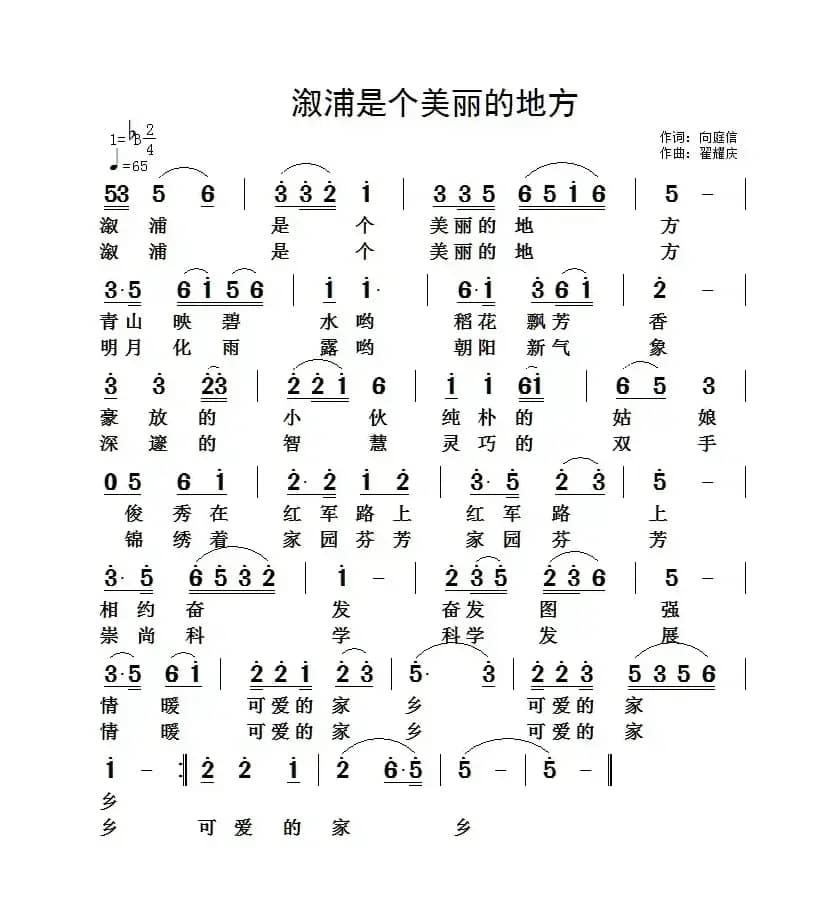 溆浦是个美丽的地方
1=♭B 2/4
♩=65
作词：向庭信
作曲：翟耀庆
53 5 6 | 3 3 2 1 | 3 3 5 6 5 1 6 | 5 - |
溆 浦 是 个 美 丽 的 地 方
溆 浦 是 个 美 丽 的 地 方
3· 5 6 1 5 6 | 1 1· | 6· 1 3 6 1 | 2 - |
青 山 映 碧 水 哟 稻 花 飘 芳 香
明 月 化 雨 露 哟 朝 阳 新 气 象
3 3 23 | 2 2 1 6 | 1 1 61 | 6 5 3 |
豪 放 的 小 伙 纯 朴 的 姑 娘
深 邃 的 智 慧 灵 巧 的 双 手
0 5 6 1 | 2· 2 1 2 | 3· 5 2 3 | 5 - |
俊 秀 在 红 军 路 上 红 军 路 上
锦 绣 着 家 园 芬 芳 家 园 芬 芳
3· 5 6 5 3 2 | 1 - | 2 3 5 2 3 6 | 5 - |
相 约 奋 发 奋 发 图 强
崇 尚 科 学 科 学 发 展
3· 5 6 1 | 2 2 1 2 3 | 5· 3 | 2 2 3 5 3 5 6 |
情 暖 可 爱 的 家 乡 可 爱 的 家
情 暖 可 爱 的 家 乡 可 爱 的 家
1 - :‖ 2 2 1 | 2 6· 5 | 5 - | 5 - ‖
乡
乡 可 爱 的 家 乡